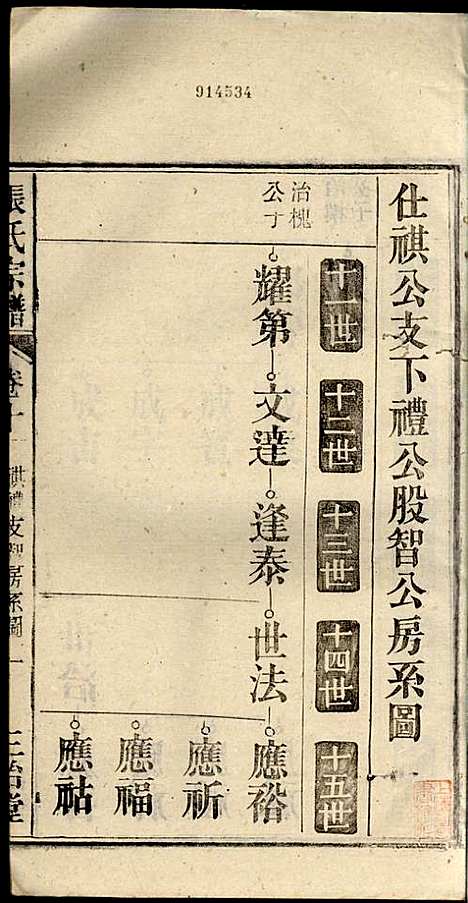 914534
仕祺公支下禮公股智公房系圖
十一世 十二世 十三世 十四世 十五世
治槐
公子
耀第 文達 逢泰 世法 應裕
應祈
應福
應祜
張氏宗譜 卷十 祺禮支智房系圖 一